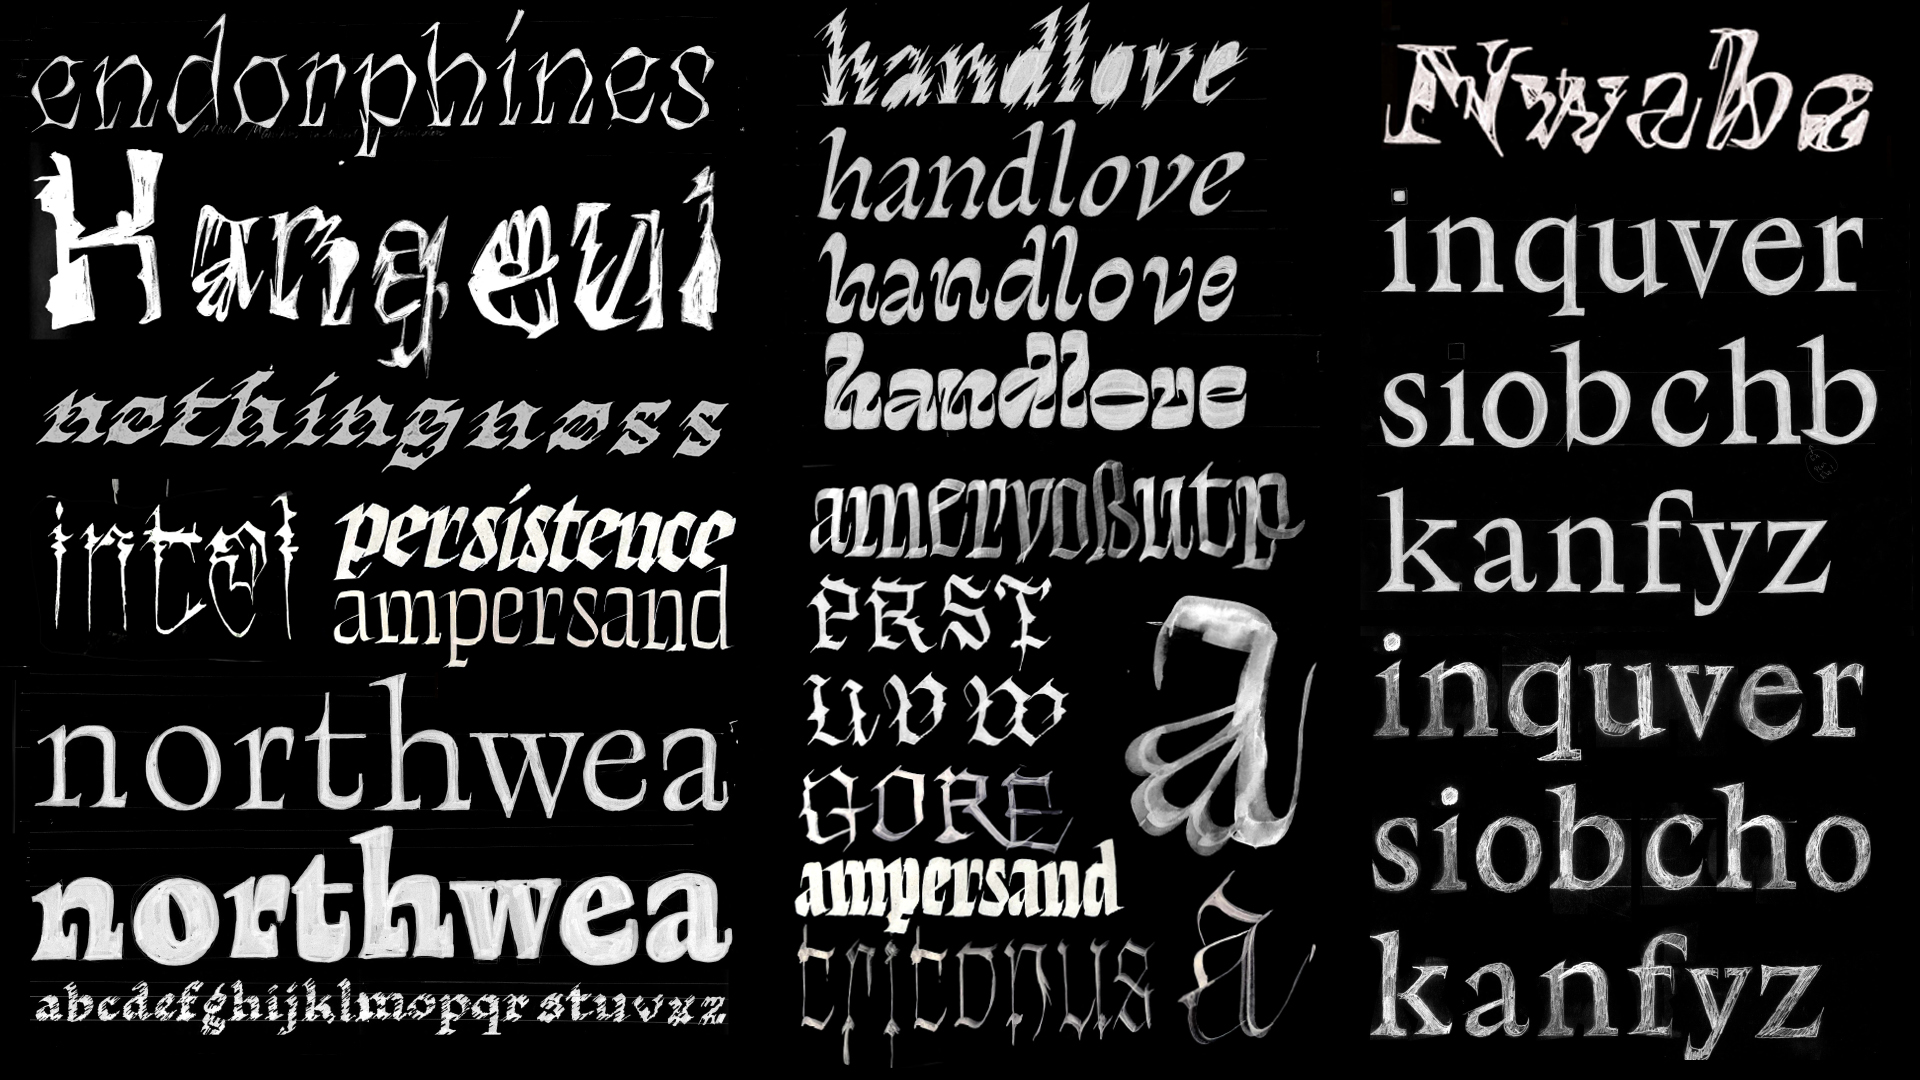 endorphines
Hangeul
nothingness
persistence
ampersand
northwea
northwea
abcdefghijklmopqrstuvxz
handlove
handlove
handlove
handlove
amervoßutp
PRST
uvw
GORE
a
ampersand
tritonus
a
Nwabe
inquver
siobchb
kanfyz
inquver
siobcho
kanfyz